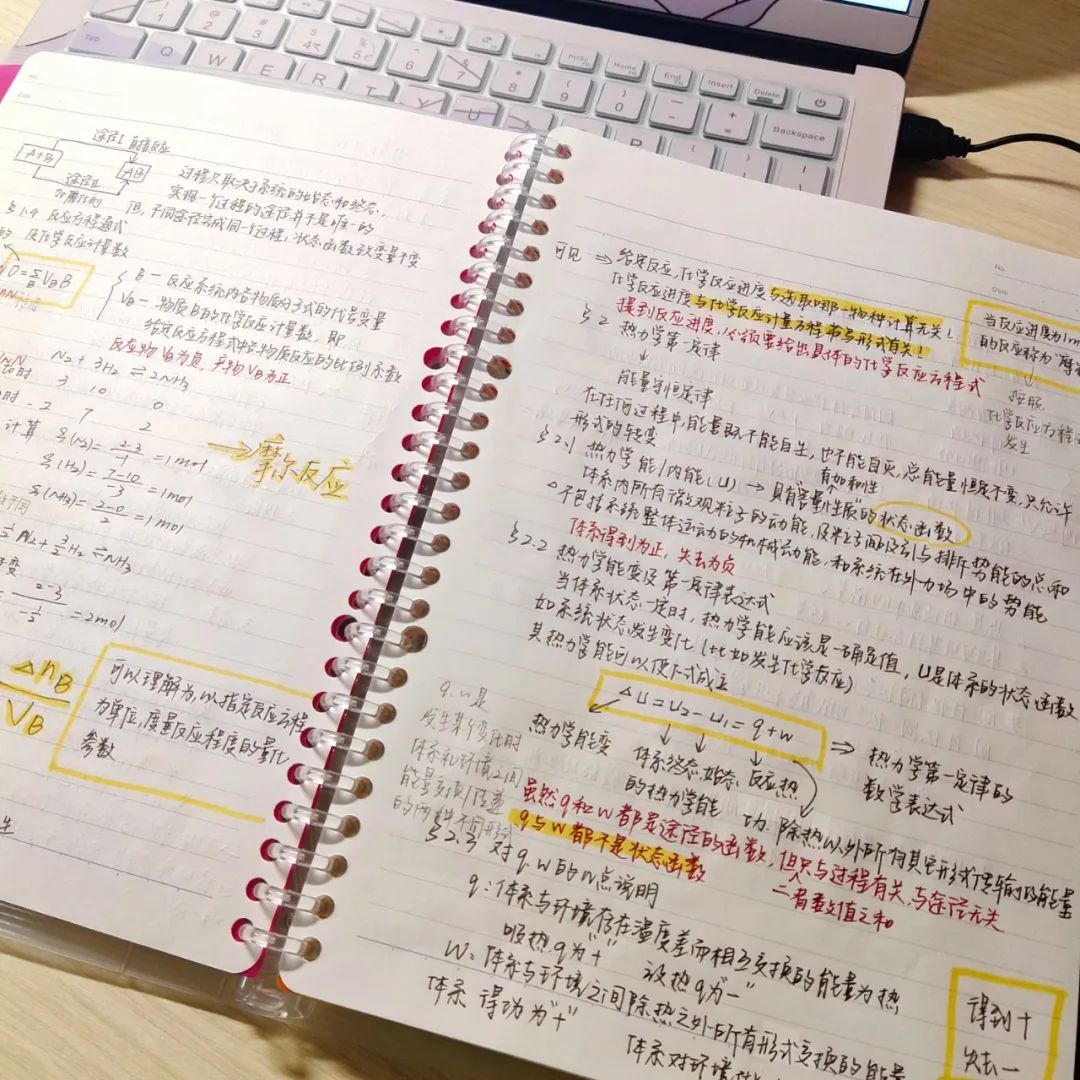 途径I 直接反应
A+B
AB
途径II
加催化剂
过程只取决于系统的始态和终态,
实现一个过程的途径并不是唯一的
但,不同途径完成同一个过程,状态函数改变量不变
§1.4 反应方程通式
化学反应计量数
0=Σ VB B
B
B — 反应系统内各物质分子式的代号变量
VB — 物质B的化学反应计量数,即
给定反应方程式中各物质反应的比例系数
反应物VB为负,产物VB为正
N2 + 3H2 ⇌ 2NH3
3 10 0
2 7 2
计算 ξ(N2)= 2-3/-1 =1mol
→摩尔反应
ξ(H2)= 7-10/-3 =1mol
ξ(NH3)= 2-0/2 =1mol
N2+ 3/2 H2 ⇌ NH3
2-3/-1/2 =2mol
ΔnB
VB
可以理解为,以指定反应方程
为单位,度量反应程度的量化
参数
可见 ⇒ 给定反应,化学反应进度与选取哪一物种计算无关!
化学反应进度与化学反应计量方程书写形式有关!
提到反应进度,必须要给出具体的化学反应方程式
当反应进度为1m
的反应称为"摩
按照
化学反应方程
发生
§2 热力学第一定律
↓
能量守恒定律
在任何过程中,能量既不能自生,也不能自灭,总能量恒定不变,只允许
形式的转变
有加和性
§2.1 热力学能/内能(U) → 具有"容量性质"的状态函数
体系内所有微观粒子的动能,及粒子间吸引与排斥势能的总和
△不包括系统整体运动的机械动能,和系统在外力场中的势能
体系得到为正,失去为负
§2.2 热力学能变及第一定律表达式
当体系状态一定时,热力学能应该是一确定值,U是体系的状态函数
如系统状态发生变化(比如发生化学反应)
其热力学能可以使下式成立
ΔU=U2-U1=q+w
⇒ 热力学第一定律的
数学表达式
热力学能变
体系终态,始态,
的热力学能
反应热
功.除热以外所有其它形式传输的能量
q.w是
发生某个变化时
体系和环境之间
能量交换/传递
的两种不同形式
虽然q和w都是途径的函数,但二者数值之和只与过程有关,与途径无关
q与w都不是状态函数
§2.3 对q.w的几点说明
q:体系与环境存在温度差而相互交换的能量为热,
吸热q为"+" 放热q为"-"
W:体系与环境之间除热之外的所有形式交换的能量
体系得功为"+"
体系对环境
得到 +
失去 -
Tab
Q W E R T Y U
PrtSc
Home
End
Insert
Delete
Backspace